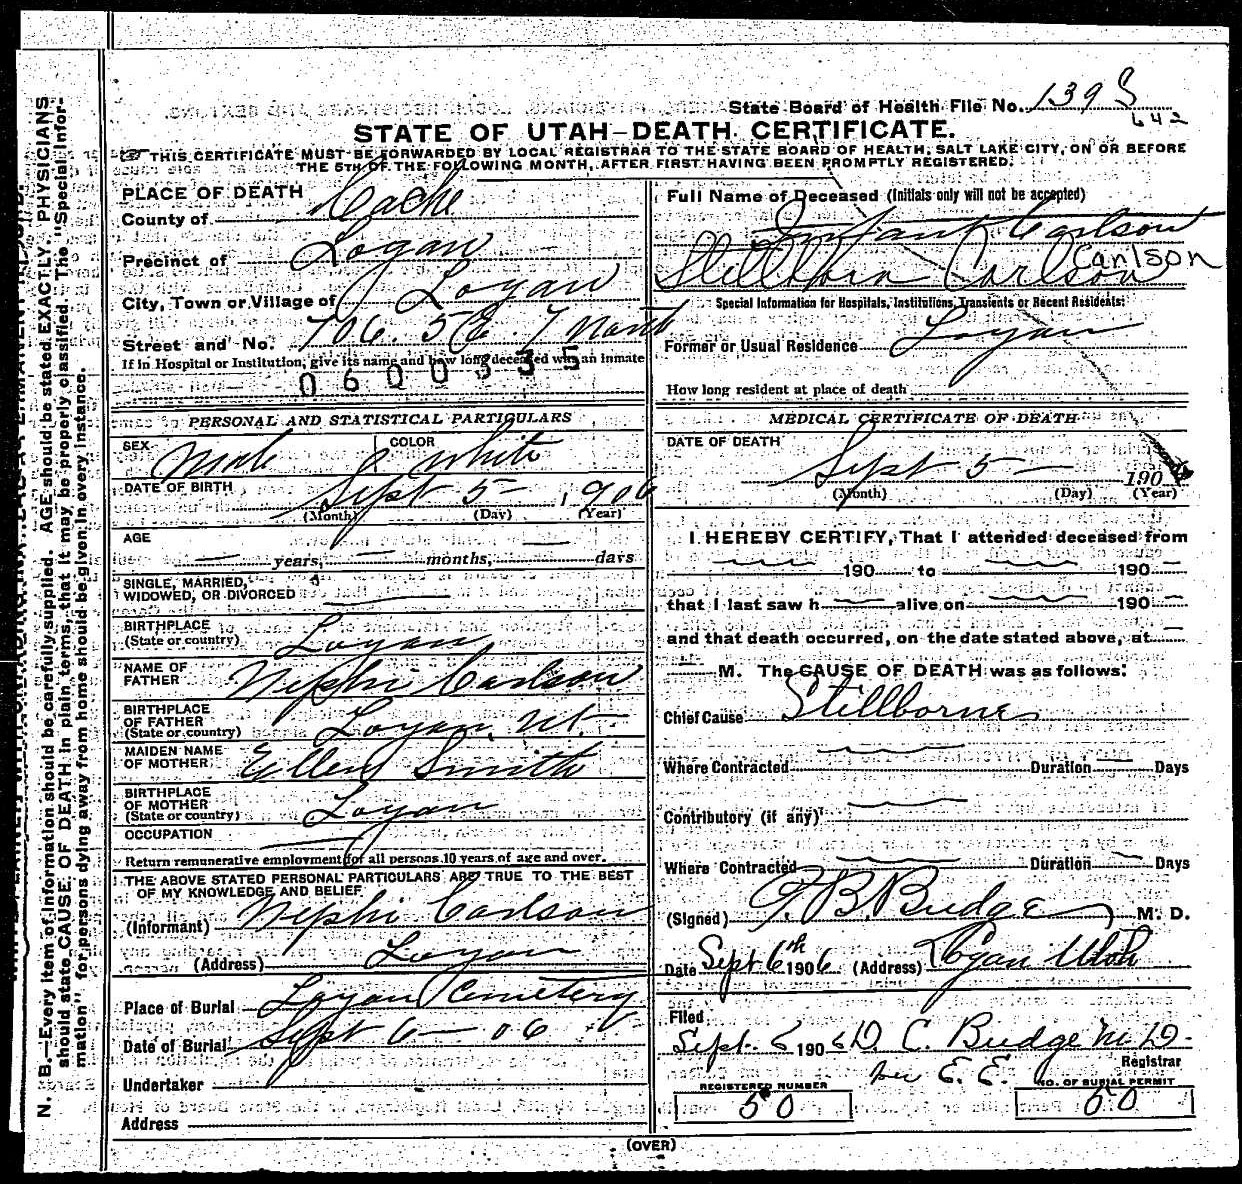 State Board of Health File No. 139 S
642
STATE OF UTAH–DEATH CERTIFICATE.
THIS CERTIFICATE MUST BE FORWARDED BY LOCAL REGISTRAR TO THE STATE BOARD OF HEALTH, SALT LAKE CITY, ON OR BEFORE
THE 5TH OF THE FOLLOWING MONTH, AFTER FIRST HAVING BEEN PROMPTLY REGISTERED.
PLACE OF DEATH
County of Cache
Precinct of Logan
City, Town or Village of Logan
Street and No. 706. 5 E. 7 North
If in Hospital or Institution, give its name and how long deceased was an inmate
0600335
Full Name of Deceased (Initials only will not be accepted)
Infant Carlson
Stillborn Carlson Carlson
Special Information for Hospitals, Institutions, Transients or Recent Residents:
Former or Usual Residence Logan
How long resident at place of death
PERSONAL AND STATISTICAL PARTICULARS
SEX Male COLOR White
DATE OF BIRTH Sept 5 – , 1906
(Month) (Day) (Year)
AGE
— years, — months, — days
SINGLE, MARRIED,
WIDOWED, OR DIVORCED —
BIRTHPLACE
(State or country) Logan
NAME OF
FATHER Nephi Carlson
BIRTHPLACE
OF FATHER
(State or country) Logan, Ut.
MAIDEN NAME
OF MOTHER Ellen Smith
BIRTHPLACE
OF MOTHER
(State or country) Logan
OCCUPATION —
Return remunerative employment for all persons 10 years of age and over.
THE ABOVE STATED PERSONAL PARTICULARS ARE TRUE TO THE BEST
OF MY KNOWLEDGE AND BELIEF
(Informant) Nephi Carlson
(Address) Logan
Place of Burial Logan Cemetery
Date of Burial Sept 6 – 06
Undertaker
Address
MEDICAL CERTIFICATE OF DEATH
DATE OF DEATH
Sept 5 — 190
(Month) (Day) (Year)
I HEREBY CERTIFY, That I attended deceased from
— 190 to — 190 —
that I last saw h — alive on — 190 —
and that death occurred, on the date stated above, at —
— M. The CAUSE OF DEATH was as follows:
Chief Cause Stillborne
Where Contracted — Duration — Days
Contributory (if any) —
Where Contracted — Duration — Days
(Signed) Budge M. D.
Date Sept 6th 1906 (Address) Logan Utah
Filed
Sept. 6 1906 D. C. Budge M.D.
Registrar
per E. E.
REGISTERED NUMBER
50
NO. OF BURIAL PERMIT
50
(OVER)
N. B.—Every item of information should be carefully supplied. AGE should be stated EXACTLY. PHYSICIANS
should state CAUSE OF DEATH in plain terms, that it may be properly classified. The "Special Infor-
mation" for persons dying away from home should be given in every instance.